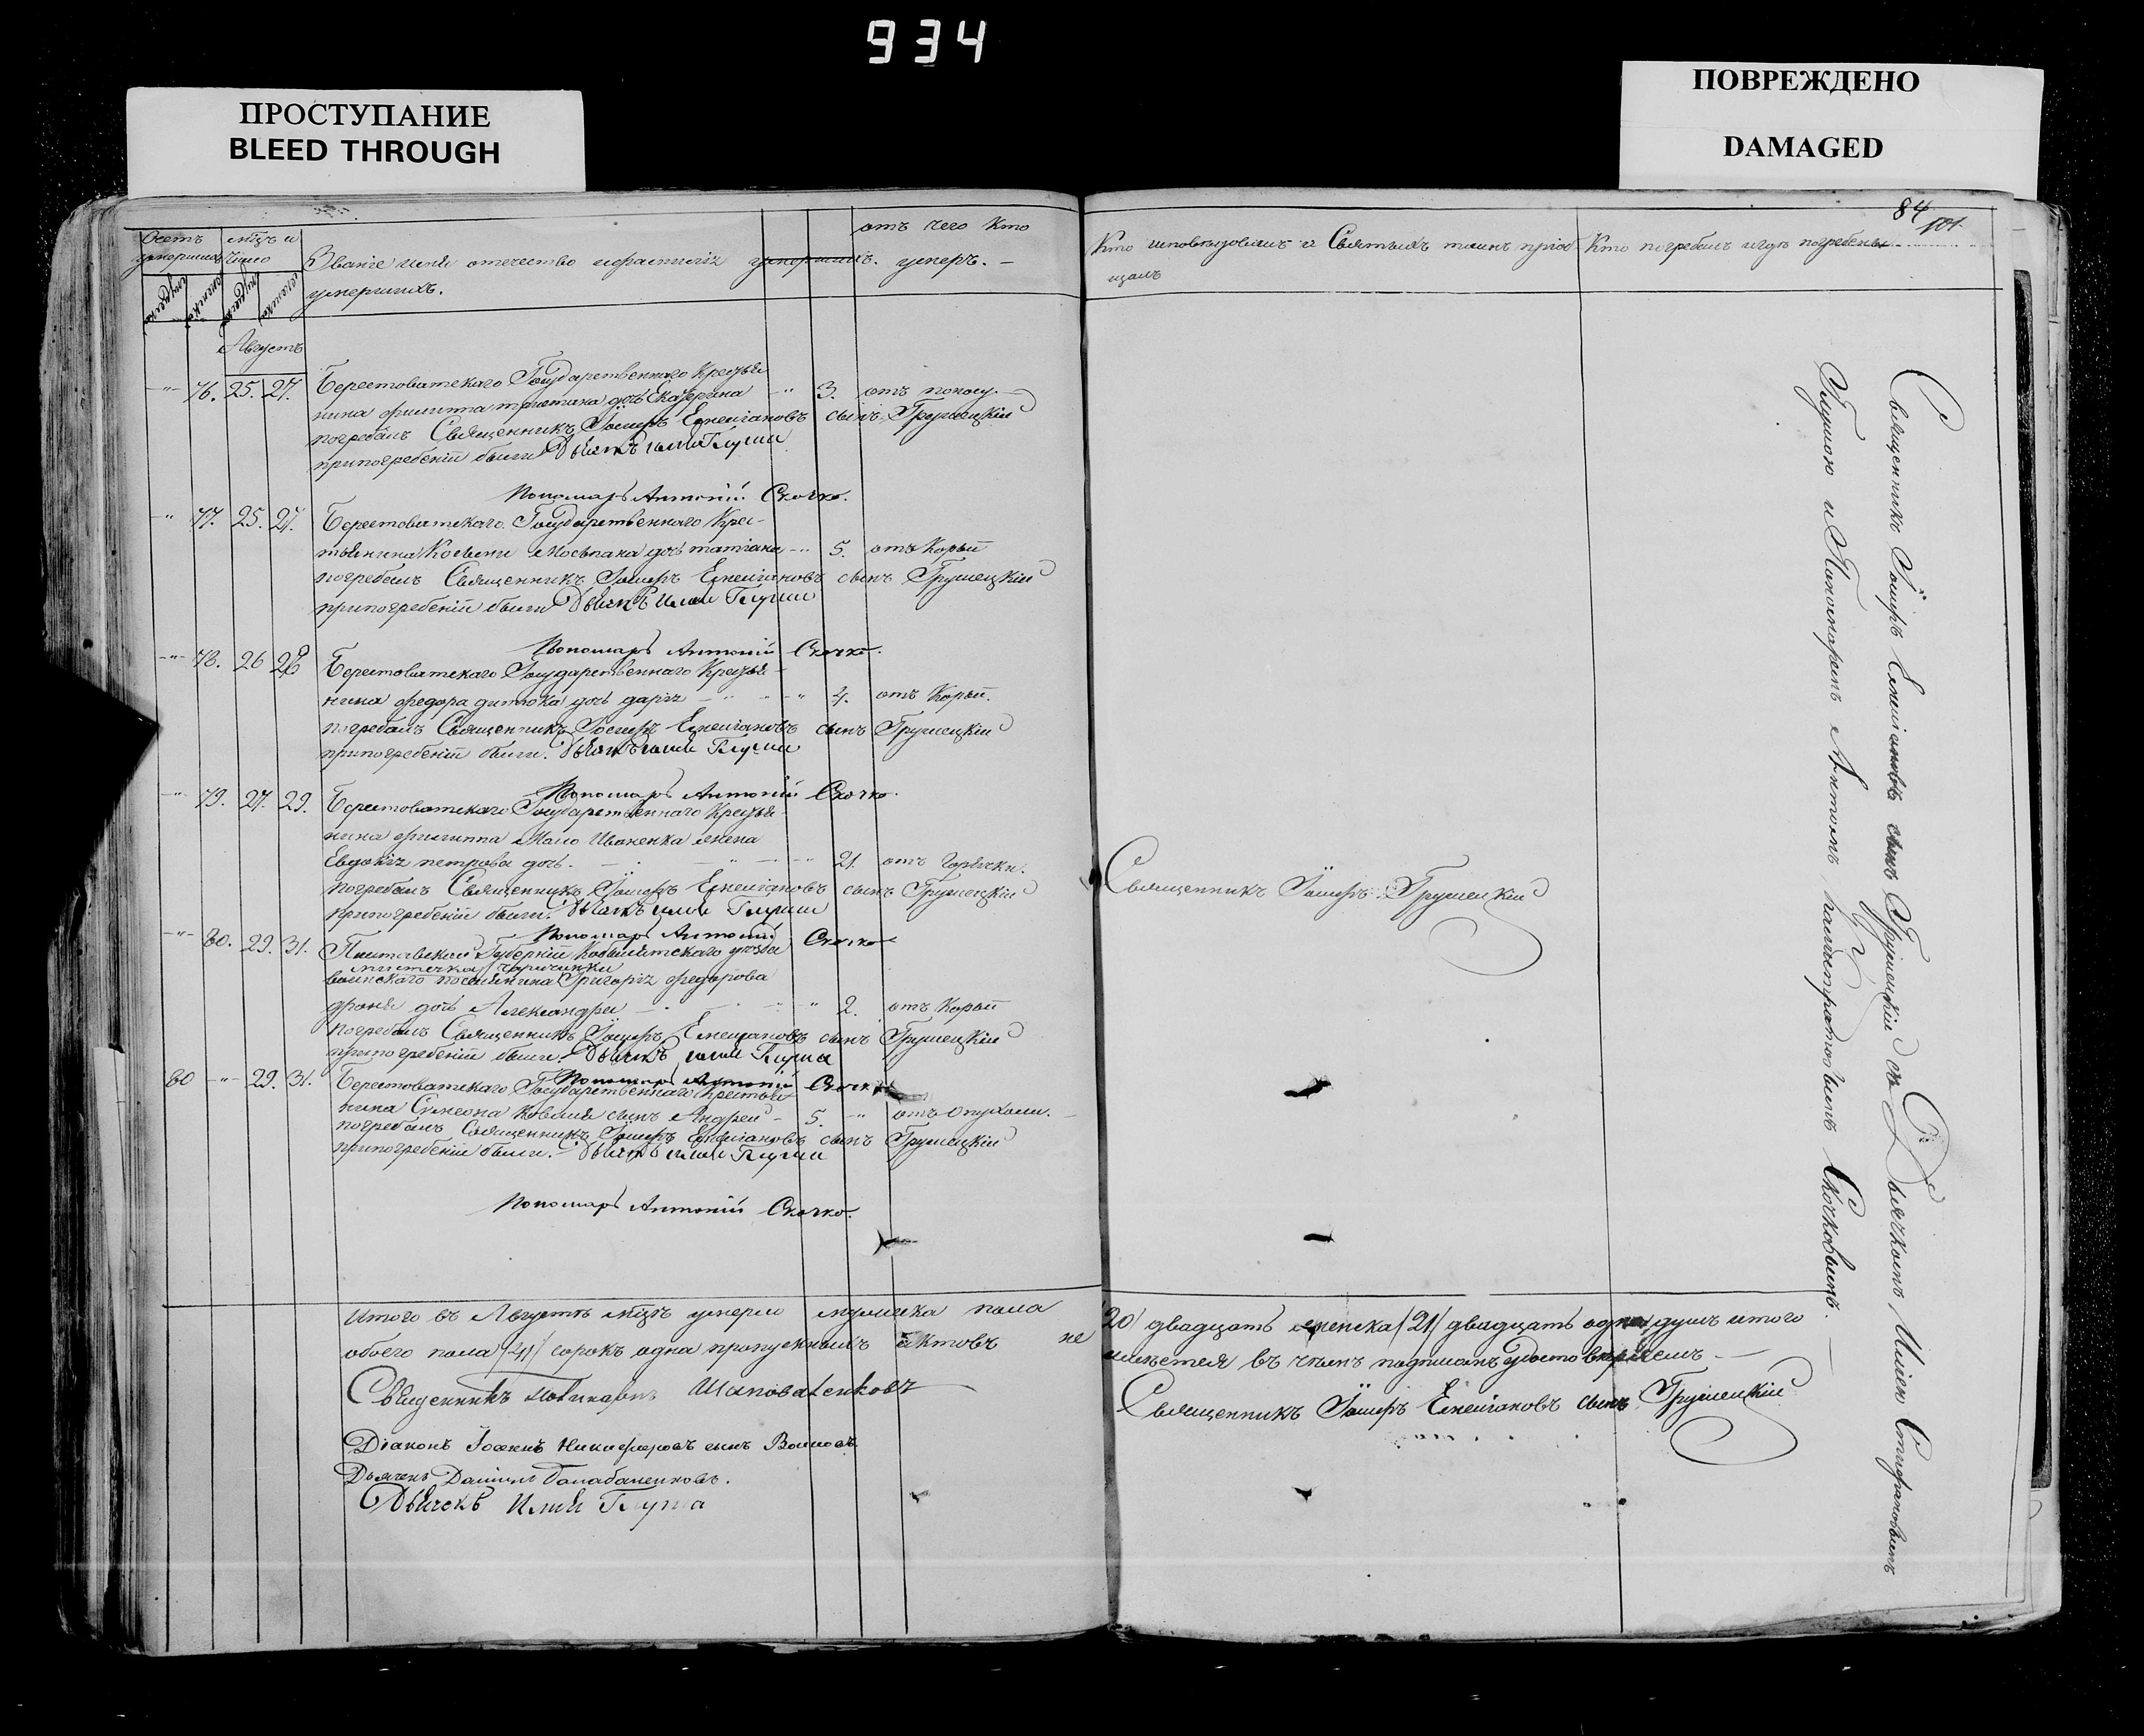 934
ПРОСТУПАНИЕ
BLEED THROUGH
ПОВРЕЖДЕНО
DAMAGED
84
101
Счетъ умершихъ
мцъ и число
Званіе имя отечество ифамиліи умершихъ.
умершихъ.
отъ чего кто
умеръ. —
Кто исповѣдовалъ и Святыхъ таинъ пріоб
щалъ
Кто погребалъ игдѣ погребены
Августъ
-"- 76. 25. 27. Берестоватскаго Государственнаго Крестья
нина филиппа дочь Екатерина -"- 3. отъ поносу
погребалъ Священникъ Іосифъ Емеліановъ сынъ Грушецкій
припогребеніи были Дьячекъ илія Глуша
Пономарь Антоній Скочко.
" 77. 25. 27. Берестоватскаго Государственнаго Крес-
тьянина дочь татіана -"- 5. отъ Корый
погребалъ Священникъ Іосифъ Емеліановъ сынъ Грушецкій
припогребеніи были Дьячекъ Илія Глуша
Пономарь Антоній Скочко.
-"- 78. 26 28 Берестоватскаго Государственнаго Крестья
нина федора дочь дарія -"- 4. отъ Корый.
погребалъ Священникъ Іосифъ Емеліановъ сынъ Грушецкій
припогребеніи были. Дьячекъ илія Глуша
Пономарь Антоній Скочко.
-"- 79. 27. 29. Берестоватскаго Государственнаго Крестья
нина филиппа Мало Иваненка жена
Евдокія петрова дочь. -"- 21. отъ Горячки.
погребалъ Священникъ Іосифъ Емеліановъ сынъ Грушецкій
припогребеніи были. Дьячекъ илія Глуша
Пономарь Антоній Скочко
-"- 80. 29. 31. Полтавской Губерніи Кобылятскаго уѣзда
мистечка
воинскаго поселянина Григорія федорова
дочь Александра -"- 2. отъ Корый
погребалъ Священникъ Іосифъ Емеліановъ сынъ Грушецкій
припогребеніи были. Дьячекъ илія Глуша
Пономарь Антоній Скочко
80 -"- 29. 31. Берестоватскаго Государственнаго Крестья
нина Симеона Коваля сынъ Андрей - 5. -"- отъ Опухоли.
погребалъ Священникъ Іосифъ Емеліановъ сынъ Грушецкій
припогребеніи были. Дьячекъ илія Глуша
Пономарь Антоній Скочко.
Священникъ Іосифъ Грушецкій
Итого въ Августѣ мцѣ умерло мужеска пола /20/ двадцать женска /21/ двадцать одна душъ итого
обоего пола /41/ сорокъ одна пропускныхъ актовъ не имѣется въ чемъ подписомъ удостовѣряемъ —
Священникъ Поликарпъ Шаповаленковъ
Священникъ Іосифъ Емеліановъ сынъ Грушецкій
Діаконъ Никифоровъ сынъ
Дьячекъ Даніилъ Балабаненковъ.
Дьячекъ Илия Глуша
Священникъ Іосифъ Емеліановъ сынъ Грушецкій съ Дьячкомъ Иліею Стефановымъ
Глушою и Пономаремъ Антономъ Скочковымъ.